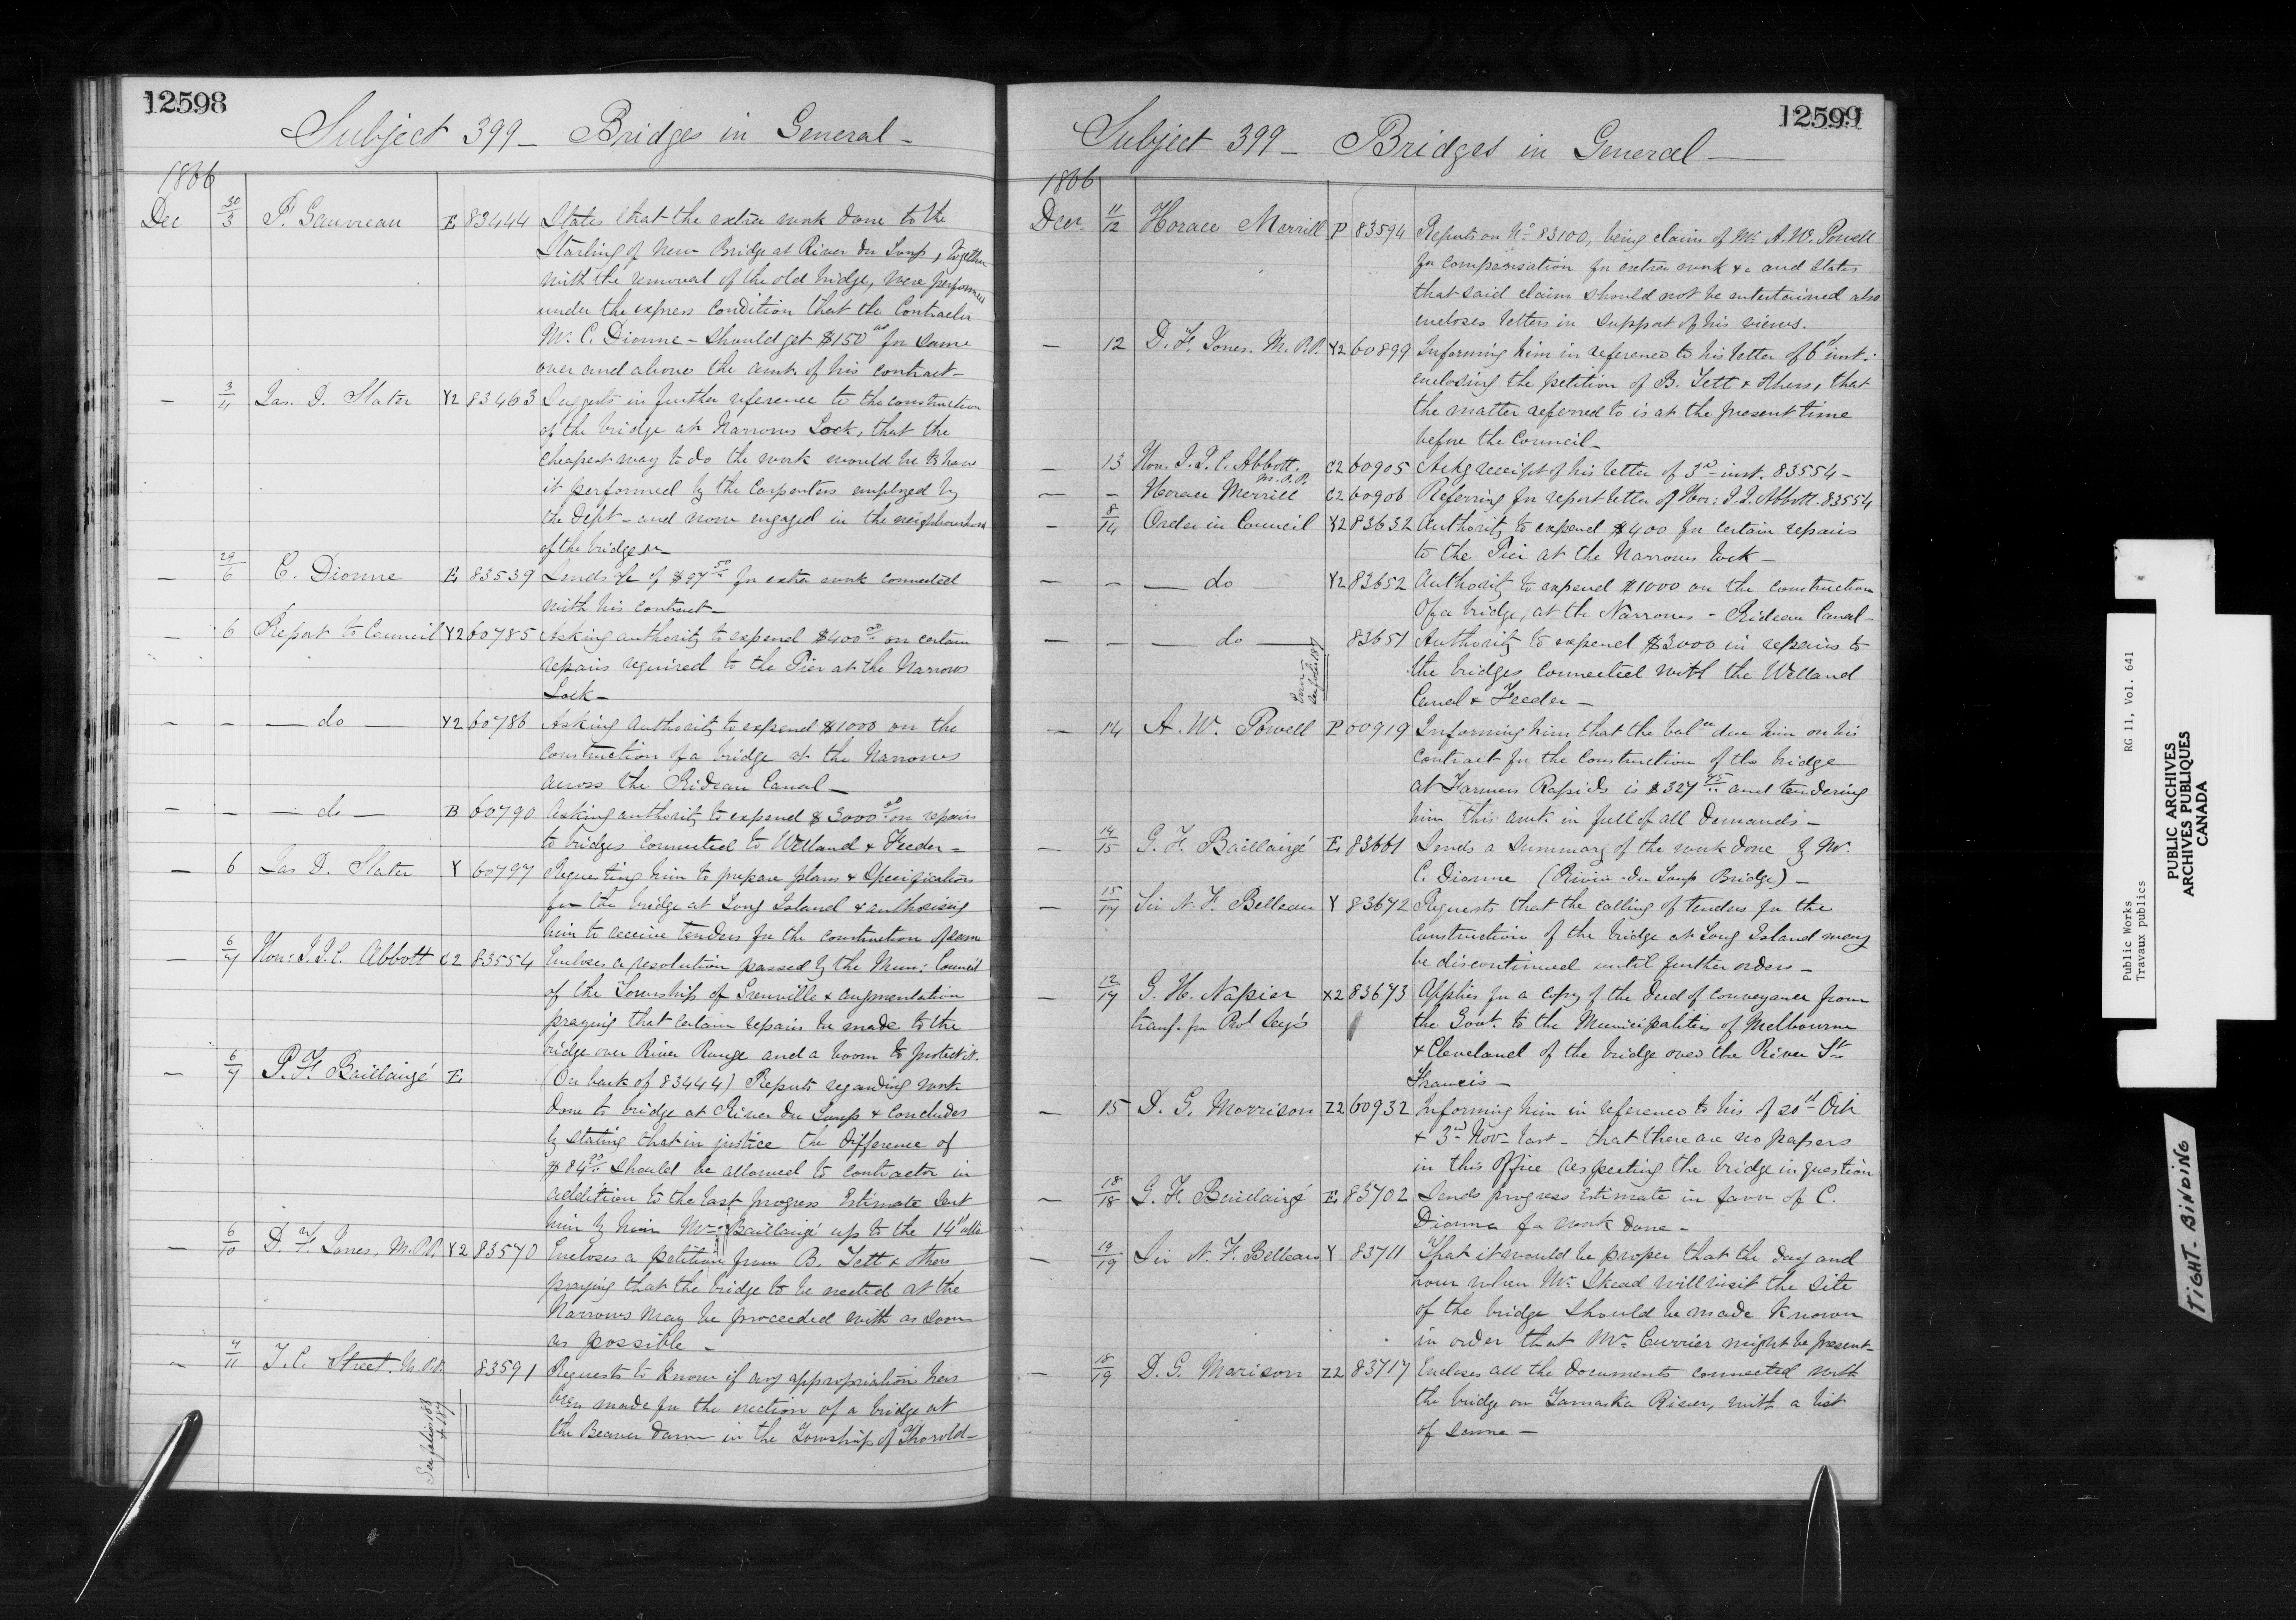 12598
Subject 399 - Bridges in General -
1866
Dec 30/3 P. Gauvreau E 83444 States that the extra work done to the
Starling of New Bridge at River du Loup, together
with the removal of the old bridge, were performed
under the express condition that the Contractor
Mr. C. Dionne - should get $150 00 for same
over and above the amt. of his contract -
- 3/11 Jas. D. Slater Y2 83463 Suggests in further reference to the construction
of the bridge at Narrows Lock, that the
cheapest way to do the work would be to have
it performed by the Carpenters employed by
the Dept - and now engaged in the neighbourhood
of the bridge &c -
- 29/6 C. Dionne E 83539 Sends a/c of $97 50 for extra work connected
with his contract -
- 6 Report to Council Y2 60785 Asking authority to expend $400 00 on certain
repairs required to the Pier at the Narrows
Lock -
- - - do - Y2 60786 Asking authority to expend $1000 on the
construction of a bridge at the Narrows
across the Rideau Canal -
- - - do - B 60790 Asking authority to expend $3000 00 on repairs
to bridges connected to Welland & Feeder -
- 6 Jas D. Slater Y 60797 Requesting him to prepare plans & Specifications
for the bridge at Long Island & authorising
him to receive tenders for the construction of same
- 6/7 Hon: J.J.C. Abbott C2 83554 Encloses a resolution passed by the Mun: Council
of the Township of Grenville & augmentation
praying that certain repairs be made to the
bridge over River Rouge and a boom to protect it.
- 6/7 P. F. Baillairgé E (On back of 83444) Reports regarding work
done to bridge at River du Loup & concludes
by stating that in justice the difference of
$84 00 should be allowed to contractor in
addition to the last progress Estimate sent
him by him Mr Baillairgé up to the 14th ulto
- 6/10 D. F. Jones, M.P.P. Y2 83570 Encloses a petition from B. Tett & others
praying that the bridge to be erected at the
Narrows may be proceeded with as soon
as possible -
- 7/11 T. C. Street M.P.P. 83591 Requests to know if any appropriation has
been made for the erection of a bridge at
the Beaver Dam in the Township of Thorold -
See folios 188
& 187
12599
Subject 399 - Bridges in General -
1866
Decr 11/12 Horace Merrill P 83594 Reports on No 83100, being claim of Mr A. W. Powell
for compensation for extra work &c and states
that said claim should not be entertained also
encloses letters in support of his views.
- 12 D. F. Jones. M.P.P. Y2 60899 Informing him in reference to his letter of 6th inst.
enclosing the petition of B. Tett & others, that
the matter referred to is at the present time
before the Council -
- 13 Hon. J.J.C. Abbott. M.P.P. C2 60905 Ackg receipt of his letter of 3rd inst. 83554 -
- - Horace Merrill C2 60906 Referring for report letter of Hon: J.J. Abbott. 83554
- 8/14 Order in Council Y2 83632 Authority to expend $400 for certain repairs
to the Pier at the Narrows lock -
- - - do Y2 83652 Authority to expend $1000 on the construction
of a bridge, at the Narrows - Rideau Canal -
- - - do - 83651 Authority to expend $3000 in repairs to
the bridges connected with the Welland
Canal & Feeder -
Error
See folio 187
- 14 A. W. Powell P 60919 Informing him that the balce due him on his
contract for the construction of the bridge
at Farmers Rapids is $327 45 and tendering
him this amt. in full of all demands -
- 14/15 G. F. Baillairgé E 83661 Sends a summary of the work done by Mr.
C. Dionne (Rivière du Loup Bridge) -
- 15/17 Sir N. F. Belleau Y 83672 Requests that the calling of tenders for the
construction of the bridge at Long Island may
be discontinued until further orders -
- 12/17 G. H. Napier X2 83673 Applies for a copy of the deed of conveyance from
transf. fm Prol Secy's the Govt. to the Municipalities of Melbourne
& Cleveland of the bridge over the River St
Francis -
- 15 D. G. Morrison Z2 60932 Informing him in reference to his of 20th Octr
& 3rd Nov - last - that there are no papers
in this Office respecting the bridge in question
- 18/18 G. F. Baillairgé E 83702 Sends progress estimate in favor of C.
Dionne for work done -
- 19/19 Sir N. F. Belleau Y 83711 That it would be proper that the day and
hour when Mr Skead will visit the site
of the bridge should be made known
in order that Mr Currier might be present -
- 18/19 D. G. Morison Z2 83717 Encloses all the documents connected with
the bridge on Yamaska River, with a list
of same -
Public Works RG 11, Vol. 641
Travaux publics
PUBLIC ARCHIVES
ARCHIVES PUBLIQUES
CANADA
TIGHT BINDING